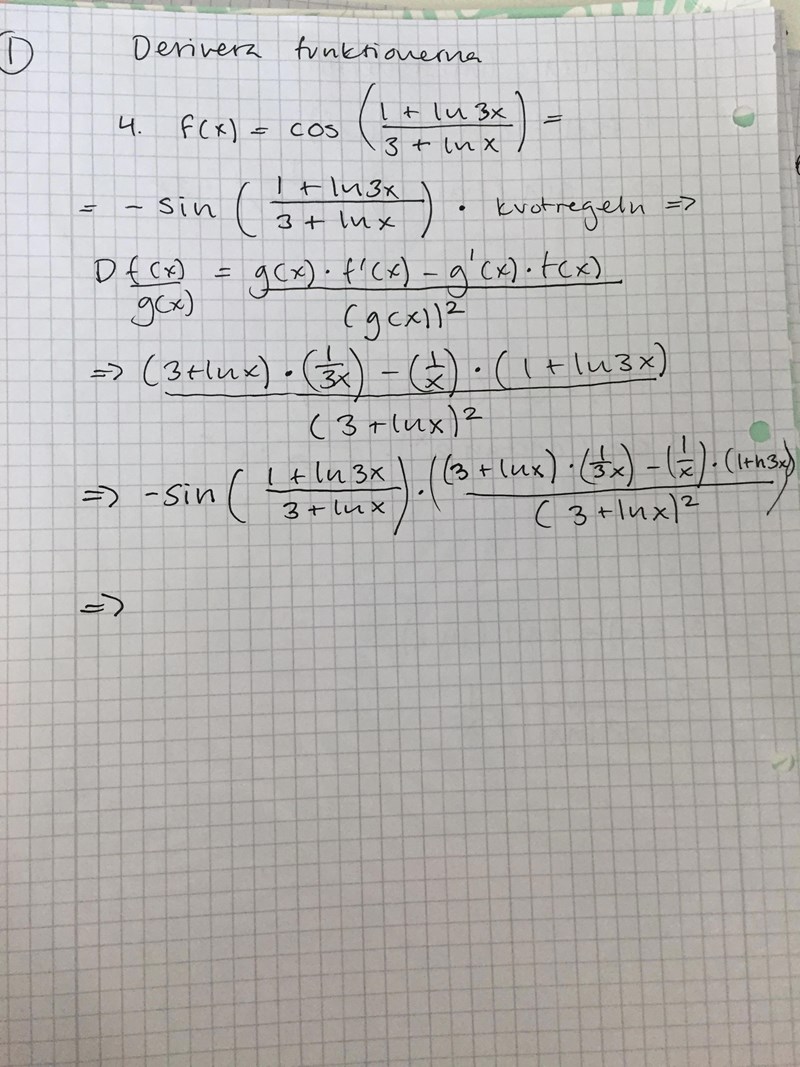 ① Derivera funktionerna
4. f(x) = cos ( (1 + ln 3x) / (3 + ln x) ) =
= - sin ( (1 + ln3x) / (3 + ln x) ) · kvotregeln =>
D f(x) / g(x) = (g(x) · f'(x) - g'(x) · f(x)) / (g(x))²
=> ((3+lnx) · (1/3x) - (1/x) · (1 + ln3x)) / (3+lnx)²
=> -sin ( (1 + ln 3x) / (3 + ln x) ) · ( ((3 + lnx) · (1/3x) - (1/x) · (1+ln3x)) / (3+lnx)² )
=>